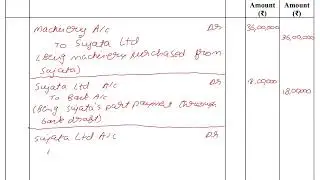 Amount (₹) Amount (₹)
Machinery A/c Dr 36,00,000
To Sujata Ltd 36,00,000
(Being machinery purchased from
Sujata)
Sujata Ltd A/c Dr 18,00,000
To Bank A/c 18,00,000
(Being Sujata's part payment through
bank draft)
Sujata Ltd A/c Dr